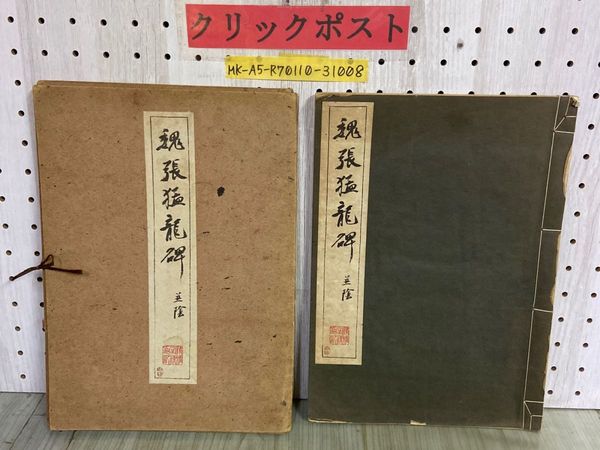 クリックポスト
HK-A5-R70110-31008
魏張猛龍碑
並陰
魏張猛龍碑
並陰